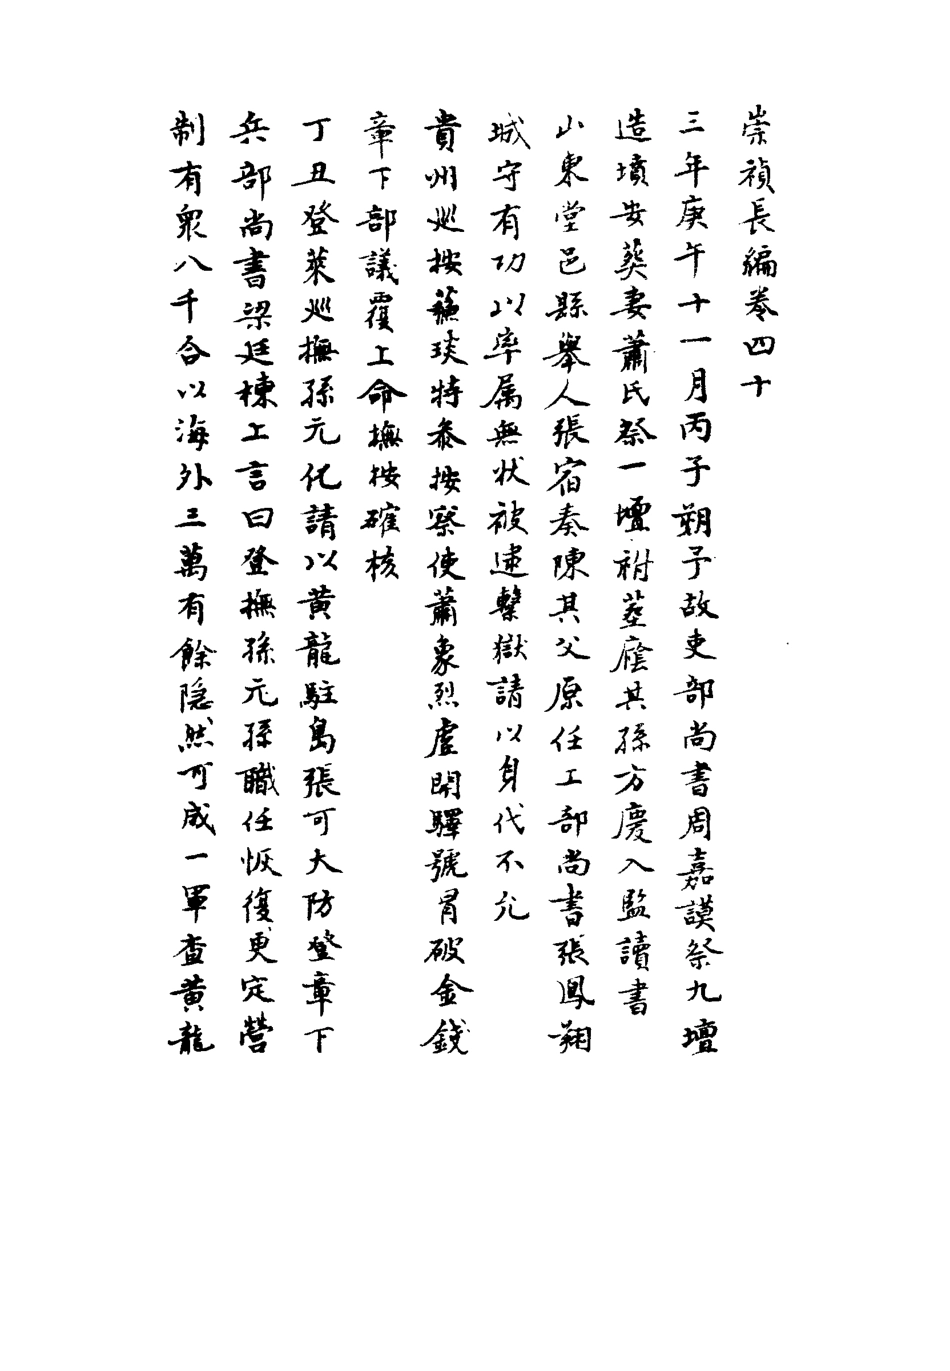 崇禎長編卷四十
三年庚午十一月丙子朔予故吏部尚書周嘉謨祭九壇
造墳安葬妻蕭氏祭一壇祔塟廕其孫方慶入監讀書
山東堂邑縣舉人張宿奏陳其父原任工部尚書張鳳翔
城守有功以率属無状被逮繫獄請以身代不允
貴州巡按蘓琰特叅按察使蕭象烈虛開驛號冐破金錢
章下部議覆上命撫按確核
丁丑登萊巡撫孫元化請以黄龍駐島張可大防登章下
兵部尚書梁廷棟上言曰登撫孫元孫職任恢復更定營
制有衆八千合以海外三萬有餘隠然可成一軍查黄龍